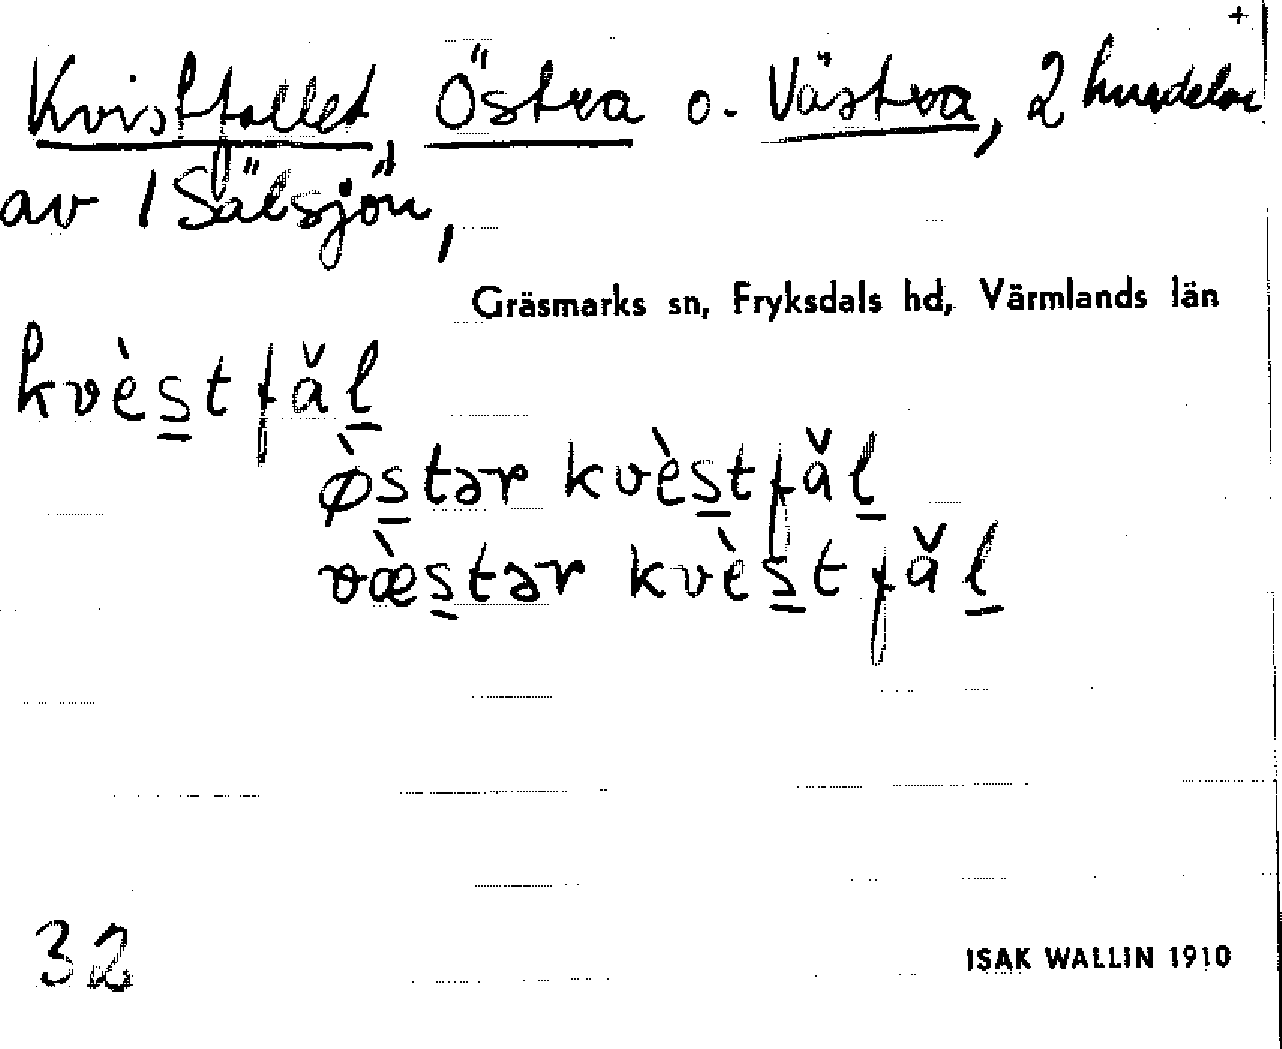 +
Kvistfallet, Östra o. Västra, 2 husdelar
av 1 Sälsjön,
Gräsmarks sn, Fryksdals hd, Värmlands län
kvès̲tfål̲
ø̀s̲tər kvès̲tfål̲
væ̀s̲tər kvès̲tfål̲
32
ISAK WALLIN 1910